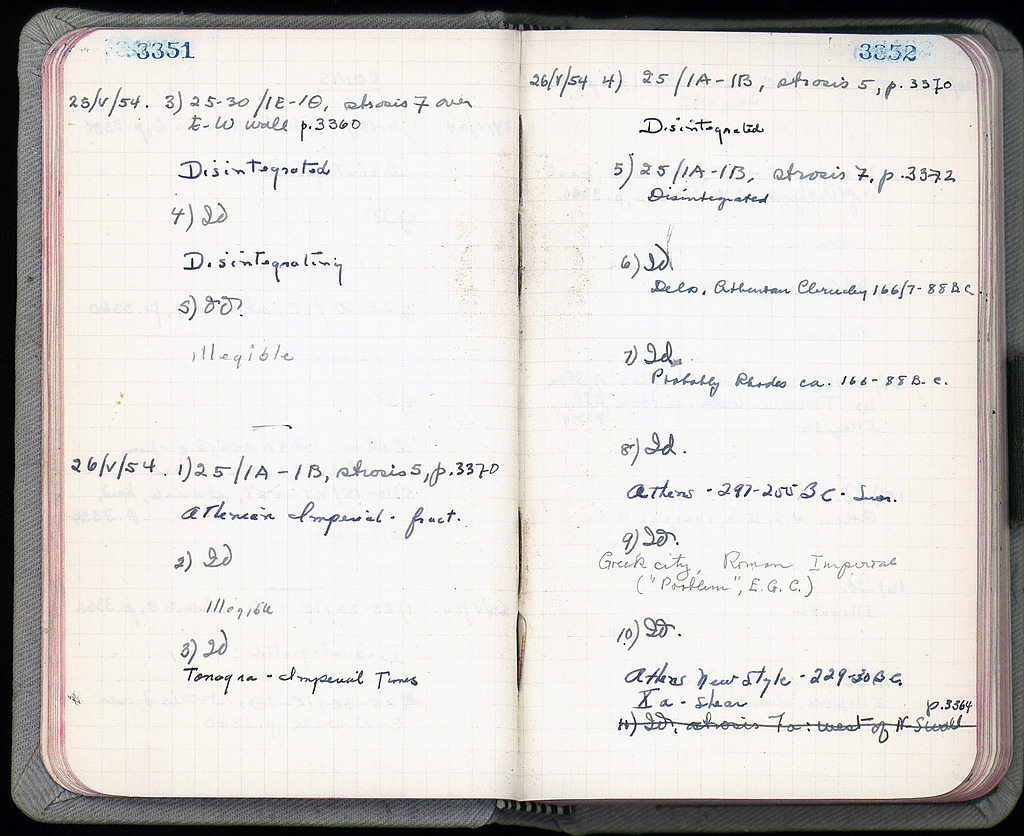 3351
25/V/54. 3) 25-30/ΙΕ-ΙΘ, strosis 7 over
E-W wall p.3360
Disintegrated
4) Id
Disintegrating
5) Id.
illegible
26/V/54. 1) 25/ΙΑ-ΙΒ, strosis 5, p.3370
Athenian Imperial - fract.
2) Id
Illegible
3) Id
Tanagra - Imperial Times
3352
26/V/54 4) 25/ΙΑ-ΙΒ, strosis 5, p.3370
Disintegrated
5) 25/ΙΑ-ΙΒ, strosis 7, p.3372
Disintegrated
6) Id
Delos, Athenian Cleruchy 166/7-88 B.C.
7) Id.
Probably Rhodes ca. 166-88 B.C.
8) Id.
Athens - 297-255 BC -
9) Id.
Greek city, Roman Imperial
("Problem", E.G.C.)
10) Id.
Athens New Style - 229-30 B.C.
p.3364
11) Id, strosis 7a: west of N-S wall